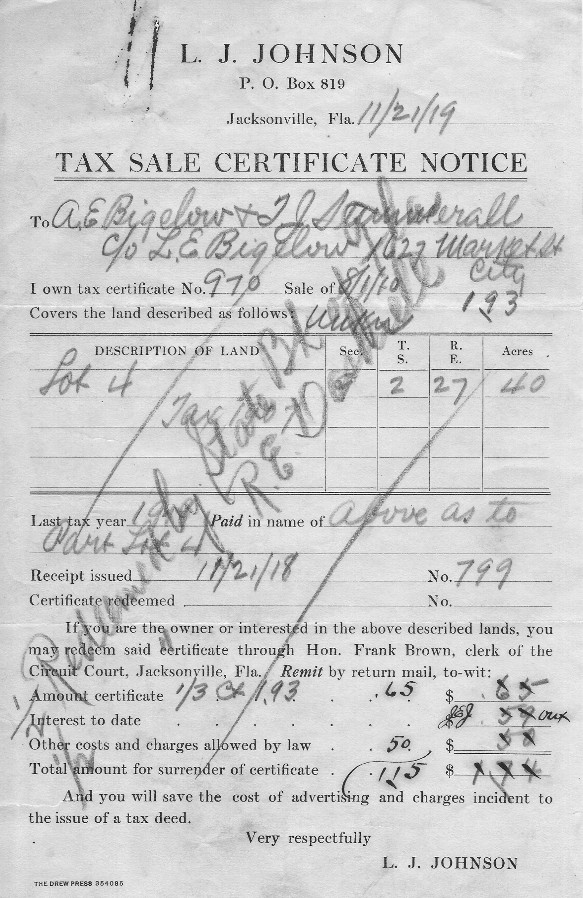 L. J. JOHNSON
P. O. Box 819
Jacksonville, Fla. 11/21/19
TAX SALE CERTIFICATE NOTICE
To A. E. Bigelow & T J Summerall
c/o L. E. Bigelow 1627 Market St
City
I own tax certificate No. 970 Sale of 8/1/10
1.93
Covers the land described as follows:
DESCRIPTION OF LAND Sec. T. S. R. E. Acres
Lot 4 2 27 40
Last tax year Paid in name of above as to
Part Lot 4
Receipt issued 11/21/18 No. 799
Certificate redeemed No.
If you are the owner or interested in the above described lands, you
may redeem said certificate through Hon. Frank Brown, clerk of the
Circuit Court, Jacksonville, Fla. Remit by return mail, to-wit:
Amount certificate 1/3 Ct 1.93 .65 $ .65
Interest to date $
Other costs and charges allowed by law .50 $
Total amount for surrender of certificate 1.15 $
And you will save the cost of advertising and charges incident to
the issue of a tax deed.
Very respectfully
L. J. JOHNSON
THE DREW PRESS 354085
1/2 Redeemed by State
Tax
R. E.
1/2 "